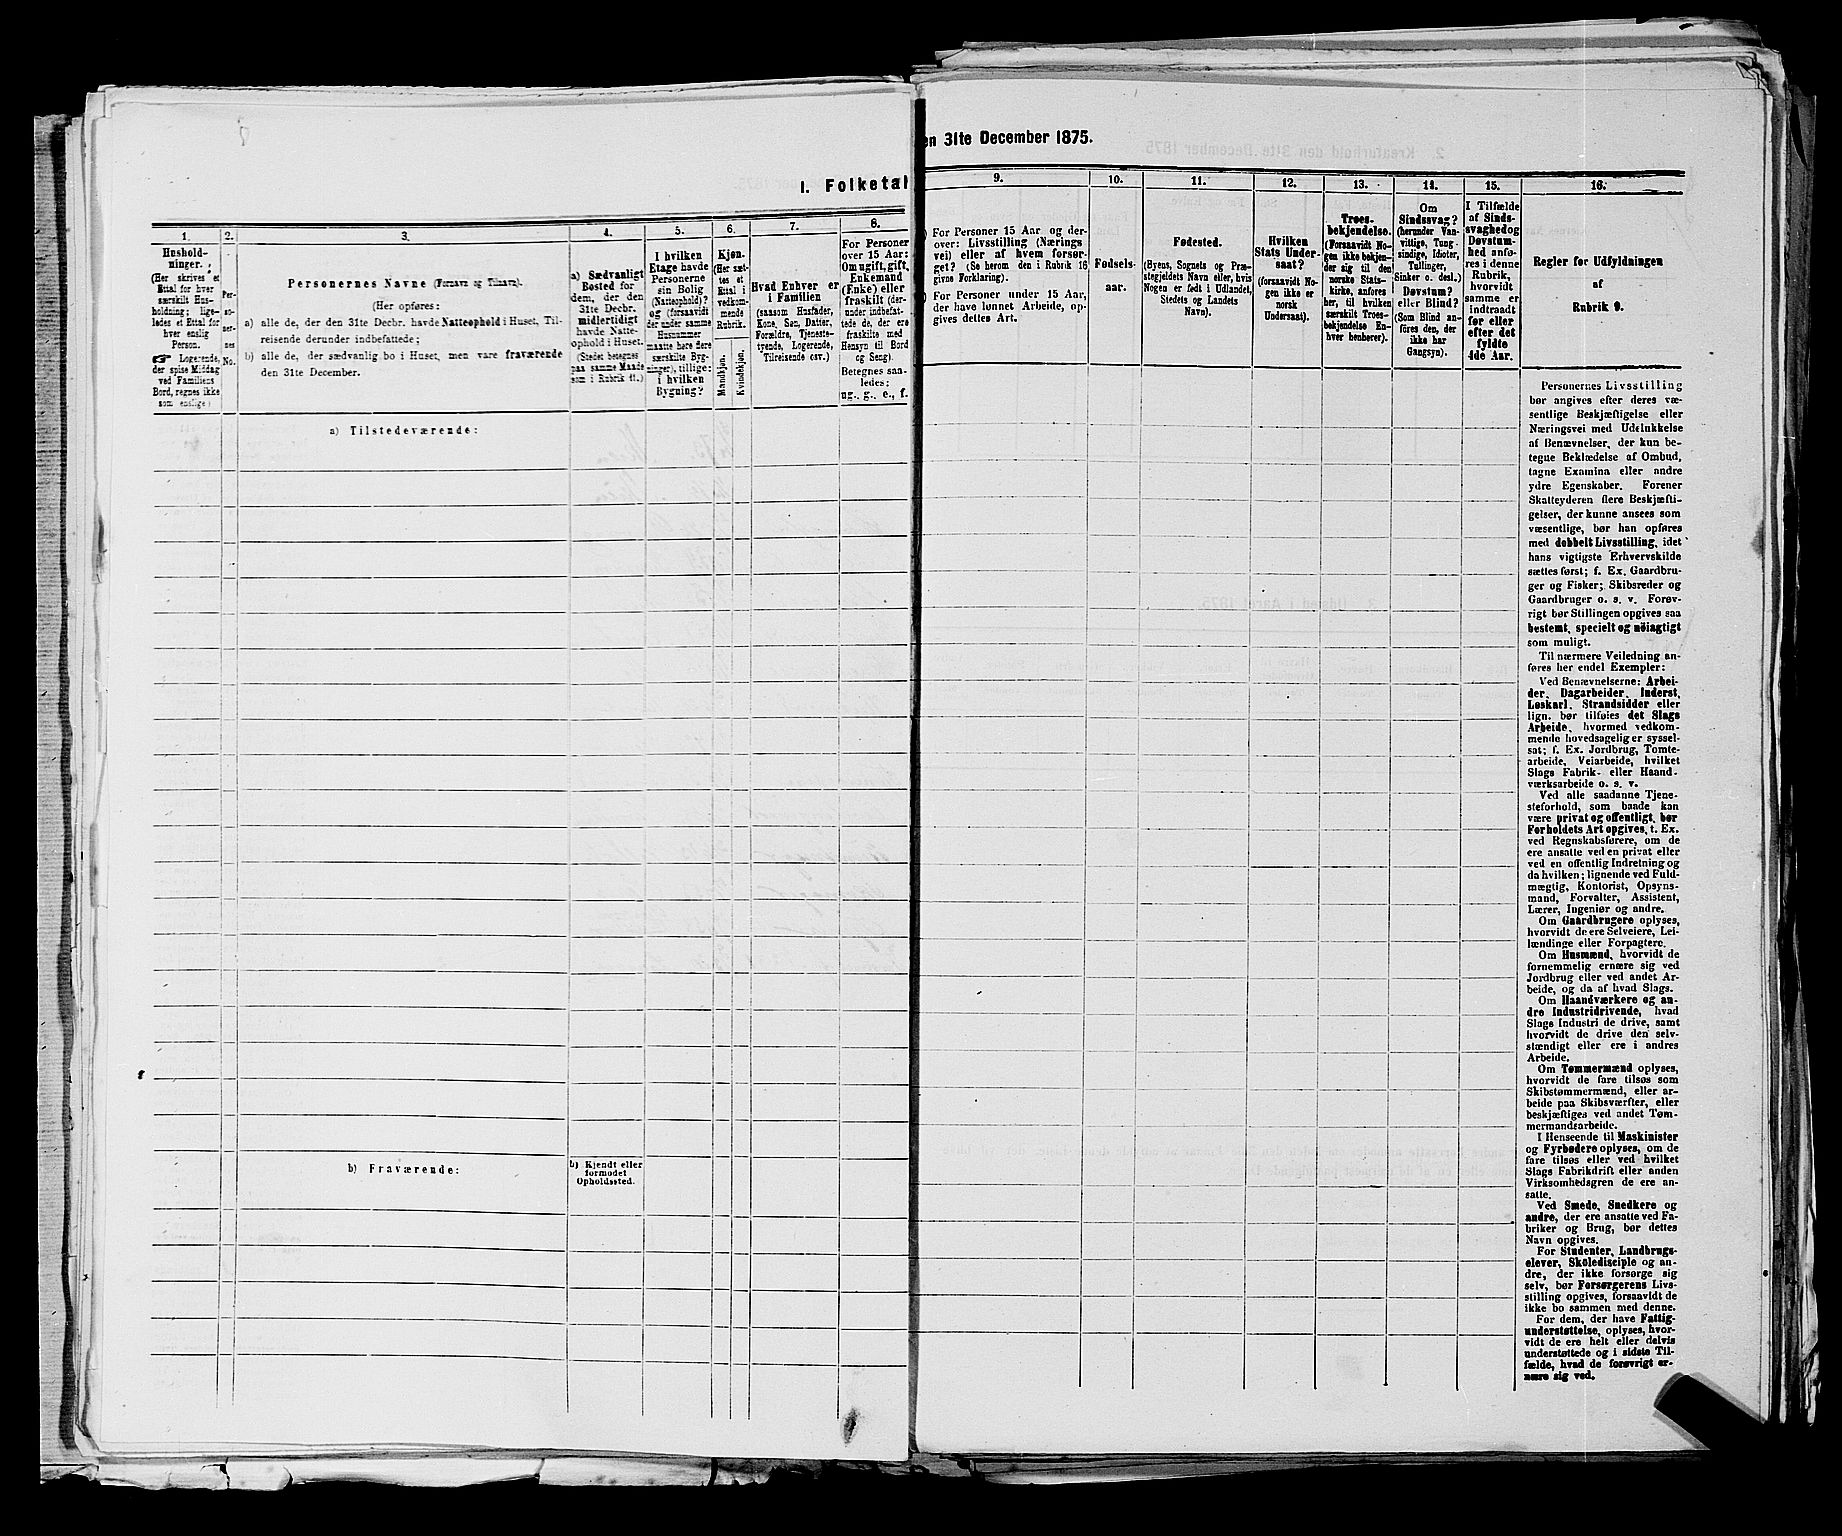 I. Folketal
1.
Hushold-
ninger.
(Her skrives et
Ettal for hver
særskilt Hus-
holdning; lige-
ledes et Ettal for
hver enslig
Person.
☞ Logerende,
der spise Middag
ved Familiens
Bord, regnes ikke
som enslige)
2.
Per-
so-
ner-
nes
No.
3.
Personernes Navne (Fornavn og Tilnavn).
(Her opføres:
a) alle de, der den 31te Decbr. havde Natteophold i Huset, Til-
reisende derunder indbefattede;
b) alle de, der sædvanlig bo i Huset, men vare fraværende
den 31te December.
4.
a) Sædvanligt
Bosted for
dem, der den
31te Decbr.
midlertidigt
havde Natte-
ophold i Huset.
(Stedet betegnes
paa samme Maade
som i Rubrik 11.)
5.
I hvilken
Etage havde
Personerne
sin Bolig
(Natteophold)?
og (forsaavidt
der under samme
Husnummer
maatte høre flere
særskilte Byg-
ninger), tillige:
i hvilken
Bygning?
6.
Kjøn.
(Her sæt-
tes et
Ettal i
vedkom-
mende
Rubrik.
Mandkjøn.
Kvindekjøn.
7.
Hvad Enhver er
i Familien
(saasom Husfader,
Kone, Søn, Datter,
Forældre, Tjeneste-
tyende, Logerende,
Tilreisende osv.)
8.
For Personer
over 15 Aar:
Om ugift, gift,
Enkemand
(Enke) eller
fraskilt (der-
under indbefat-
tede de, der ere
fraskilte med
Hensyn til Bord
og Seng).
Betegnes saa-
ledes:
ug., g., e., f.
a) Tilstedeværende:
b) Fraværende:
b) Kjendt eller
formodet
Opholdssted.
en 31te December 1875.
9.
) For Personer 15 Aar og der-
over: Livsstilling (Nærings
vei) eller af hvem forsør-
get? (Se herom den i Rubrik 16
givne Forklaring).
) For Personer under 15 Aar,
der have lønnet Arbeide, op-
gives dettes Art.
10.
Fødsels-
aar.
11.
Fødested.
(Byens, Sognets og Præ-
stegjeldets Navn eller, hvis
Nogen er født i Udlandet,
Stedets og Landets
Navn).
12.
Hvilken
Stats Under-
saat?
(forsaavidt No-
gen ikke er
norsk
Undersaat).
13.
Troes-
bekjendelse.
(Forsaavidt No-
gen ikke bekjen-
der sig til den
norske Stats-
kirke, anføres
her, til hvilken
særskilt Troes-
bekjendelse En-
hver henhører).
14.
Om
Sindssvag?
(herunder Van-
vittige, Tung-
sindige, Idioter,
Tullinger,
Sinker o. desl.)
Døvstum?
eller Blind?
(Som Blind an-
føres den, der
ikke har
Gangsyn).
15.
I Tilfælde
af Sinds-
svaghed og
Døvstum-
hed anfø-
res i denne
Rubrik,
hvorvidt
samme er
indtraadt
før eller
efter det
fyldte
4de Aar.
16.
Regler for Udfyldningen
af
Rubrik 9.
Personernes Livsstilling
bør angives efter deres væ-
sentlige Beskjæftigelse eller
Næringsvei med Udelukkelse
af Benævnelser, der kun be-
tegne Beklædelse af Ombud,
tagne Examina eller andre
ydre Egenskaber. Forener
Skatteyderen flere Beskjæfti-
gelser, der kunne ansees som
væsentlige, bør han opføres
med dobbelt Livsstilling, idet
hans vigtigste Erhvervskilde
sættes først; f. Ex. Gaardbru-
ger og Fisker; Skibsreder og
Gaardbruger o. s. v. Forøv-
rigt bør Stillingen opgives saa
bestemt, specielt og nöiagtigt
som muligt.
Til nærmere Veiledning an-
føres her endel Exempler:
Ved Benævnelserne: Arbei-
der, Dagarbeider, Inderst,
Løskarl, Strandsidder eller
lign. bør tilføies det Slags
Arbeide, hvormed vedkom-
mende hovedsagelig er syssel-
sat; f. Ex. Jordbrug, Tomte-
arbeide, Veiarbeide, hvilket
Slags Fabrik- eller Haand-
værksarbeide o. s. v.
Ved alle saadanne Tjene-
steforhold, som baade kan
være privat og offentligt, bør
Forholdets Art opgives, t. Ex.
ved Regnskabsførere, om de
ere ansatte ved en privat eller
ved en offentlig Indretning og
da hvilken; lignende ved Fuld-
mægtig, Kontorist, Opsyns-
mand, Forvalter, Assistent,
Lærer, Ingeniør og andre.
Om Gaardbrugere oplyses,
hvorvidt de ere Selveiere, Lei-
lændinge eller Forpagtere.
Om Husmænd, hvorvidt de
fornemmelig ernære sig ved
Jordbrug eller ved andet Ar-
beide, og da af hvad Slags.
Om Haandværkere og an-
dre Industridrivende, hvad
Slags Industri de drive, samt
hvorvidt de drive den selv-
stændigt eller ere i andres
Arbeide.
Om Tømmermænd oplyses,
hvorvidt de fare tilsøs som
Skibstømmermænd, eller ar-
beide paa Skibsværfter, eller
beskjæftiges ved andet Tøm-
mermandsarbeide.
I Henseende til Maskinister
og Fyrbødere oplyses, om de
fare tilsøs eller ved hvilket
Slags Fabrikdrift eller anden
Virksomhedsgren de ere an-
satte.
Ved Smede, Snedkere og
andre, der ere ansatte ved Fa-
briker og Brug, bør dettes
Navn opgives.
For Studenter, Landbrugs-
elever, Skoledisciple og an-
dre, der ikke forsørge sig
selv, bør Forsørgerens Livs-
stilling opgives, forsaavidt de
ikke bo sammen med denne.
For dem, der have Fattig-
understøttelse, oplyses, hvor-
vidt de ere helt eller delvis
understøttede og i sidste Til-
fælde, hvad de forøvrigt er-
nære sig ved.